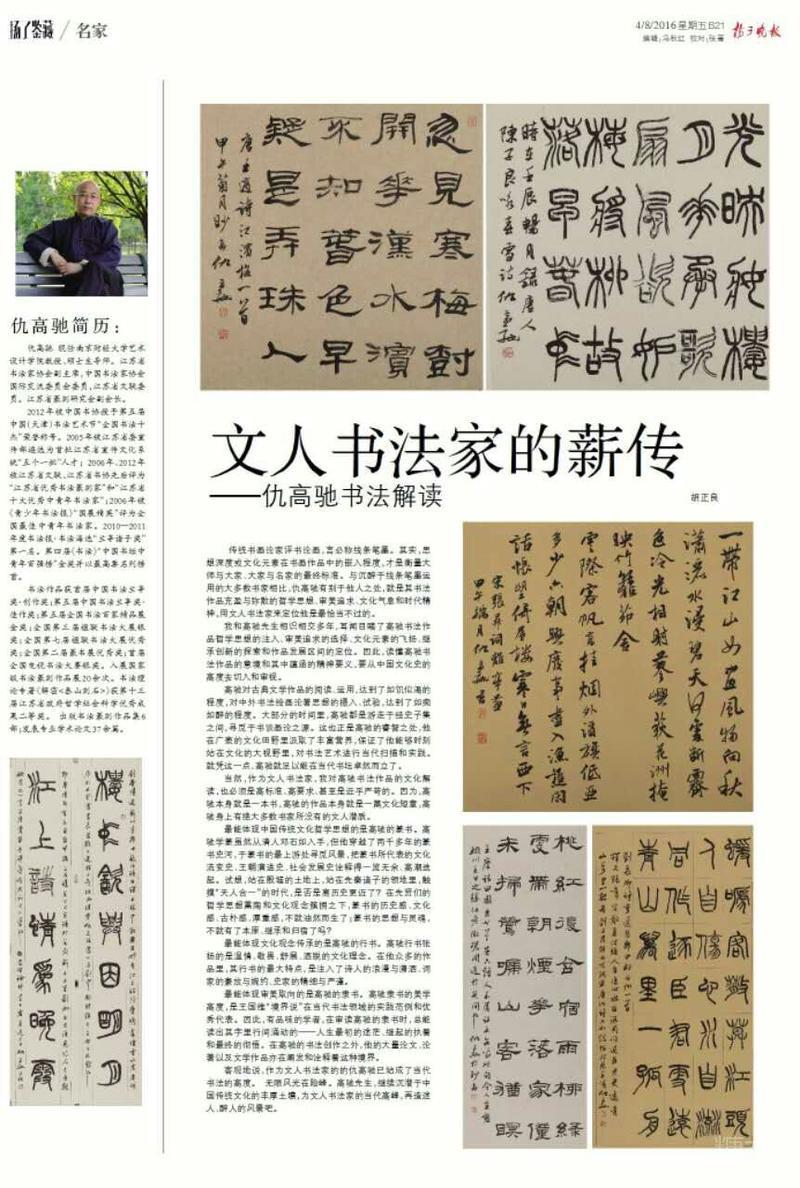 扬子鉴藏 / 名家
4/8/2016 星期五 B21
编辑:冯秋红 校对:张蕾
扬子晚报
忽見寒梅對
開花漢水濱
不知春色早
疑是弄珠人
唐王適詩江濱梅一首
甲午菊月
光映妝樓
月花承歌
扇風欲妒
梅將柳故
落早春中
時在壬辰暢月錄唐人
陳子良咏春雪詩
仇高驰简历:
仇高驰 现任南京财经大学艺术
设计学院教授、硕士生导师。江苏省
书法家协会副主席,中国书法家协会
国际交流委员会委员,江苏省文联委
员。江苏省篆刻研究会副会长。
2012年被中国书协授予第五届
中国(天津)书法艺术节“全国书法十
杰”荣誉称号。2005年被江苏省委宣
传部遴选为首批江苏省宣传文化系
统“五个一批”人才;2006年、2012年
被江苏省文联、江苏省书协先后评为
“江苏省优秀书法篆刻家”和“江苏省
十大优秀中青年书法家”;2006年被
《青少年书法报》“国展精英”评为全
国最佳中青年书法家。2010—2011
年度书法报·书法海选“兰亭诸子奖”
第一名。第四届《书法》“中国书坛中
青年百强榜”金奖并以最高票名列榜
首。
书法作品获首届中国书法兰亭
奖·创作奖;第五届中国书法兰亭奖·
佳作奖;第五届全国书法百家精品展
金奖;全国第三届楹联书法大展银
奖;全国第七届楹联书法大展优秀
奖;全国第二届篆书展优秀奖;首届
全国电视书法大赛银奖。入展国家
级书法篆刻作品展20余次。书法理
论专著《解密<泰山刻石>》获第十三
届江苏省政府哲学社会科学优秀成
果二等奖。 出版书法篆刻作品集6
部;发表专业学术论文37余篇。
文人书法家的薪传
——仇高驰书法解读
胡正良
传统书画论家评书论画,言必称线条笔墨。其实,思
想深度或文化元素在书画作品中的嵌入程度,才是衡量大
师与大家、大家与名家的最终标准。与沉醉于线条笔墨运
用的大多数书家相比,仇高驰有别于他人之处,就是其书法
作品充盈与弥散的哲学思想、审美追求、文化气息和时代精
神,用文人书法家来定位他是最恰当不过的。
我和高驰先生相识相交多年,耳闻目睹了高驰书法作
品哲学思想的注入、审美追求的选择、文化元素的飞扬、继
承创新的探索和作品发展区间的定位。因此,读懂高驰书
法作品的意境和其中蕴涵的精神要义,要从中国文化史的
高度去切入和审视。
高驰对古典文学作品的阅读、运用,达到了如饥似渴的
程度,对中外书法绘画论著思想的摄入、试验,达到了如痴
如醉的程度。大部分的时间里,高驰都是游走于经史子集
之间,寻觅于书谈画论之源。这也正是高驰的睿智之处,他
在广袤的文化田野里汲取了丰富营养,保证了他能够时刻
站在文化的大视野里,对书法艺术进行当代扫描和实践。
就凭这一点,高驰就足以能在当代书坛卓然而立了。
当然,作为文人书法家,我对高驰书法作品的文化解
读,也必须是高标准、高要求、甚至是近乎严苛的。因为,高
驰本身就是一本书,高驰的作品本身就是一篇文化短章,高
驰身上有绝大多数书家所没有的文人潜质。
最能体现中国传统文化哲学思想的是高驰的篆书。高
驰学篆虽然从清人邓石如入手,但他穿越了两千多年的篆
书史河,于篆书的最上游处寻觅风景,把篆书所代表的文化
流变史、王朝演进史、社会发展史诠释得一波无余、高潮迭
起。试想,站在殷墟的土地上,站在先秦诸子的领地里,触
摸“天人合一”的时代,是否是离历史更近了?在先贤们的
哲学思想熏陶和文化观念簇拥之下,篆书的历史感、文化
感、古朴感、厚重感,不就油然而生了;篆书的思想与灵魂,
不就有了本原、继承和归宿了吗?
最能体现文化观念传承的是高驰的行书。高驰行书张
扬的是温情、敬畏、舒展、洒脱的文化理念。在他众多的作
品里,其行书的最大特点,是注入了诗人的浪漫与潇洒、词
家的豪放与婉约、史家的精细与严谨。
最能体现审美取向的是高驰的隶书。高驰隶书的美学
高度,是王国维“境界说”在当代书法领域的实践范例和优
秀代表。因此,有品味的学者,在审读高驰的隶书时,总能
读出其字里行间涌动的——人生最初的迷茫、继起的执着
和最终的彻悟。在高驰的书法创作之外,他的大量论文、论
著以及文学作品亦在阐发和诠释着这种境界。
客观地说,作为文人书法家的的仇高驰已站成了当代
书法的高度。 无限风光在险峰。高驰先生,继续沉潜于中
国传统文化的丰厚土壤,为文人书法家的当代高峰,再造迷
人、醉人的风景吧。
一带江山如畫風物向秋
瀟灑水浸碧天何處斷霽
色冷光相射蓼嶼荻花洲掩
映竹籬茅舍
雲際客帆高挂烟外酒旗低亞
多少六朝興廢事盡入漁樵閑
話悵望倚層樓寒日無言西下
宋張昇詞離亭燕
甲午
樓中飲興因明月
江上詩情爲晚霞
桃紅復含宿雨柳緑
更帶朝煙花落家僮
未掃鶯啼山客猶眠
暖暘客散井江頭
人自傷心水自流
同作逐臣君更遠
青山萬里一孤舟